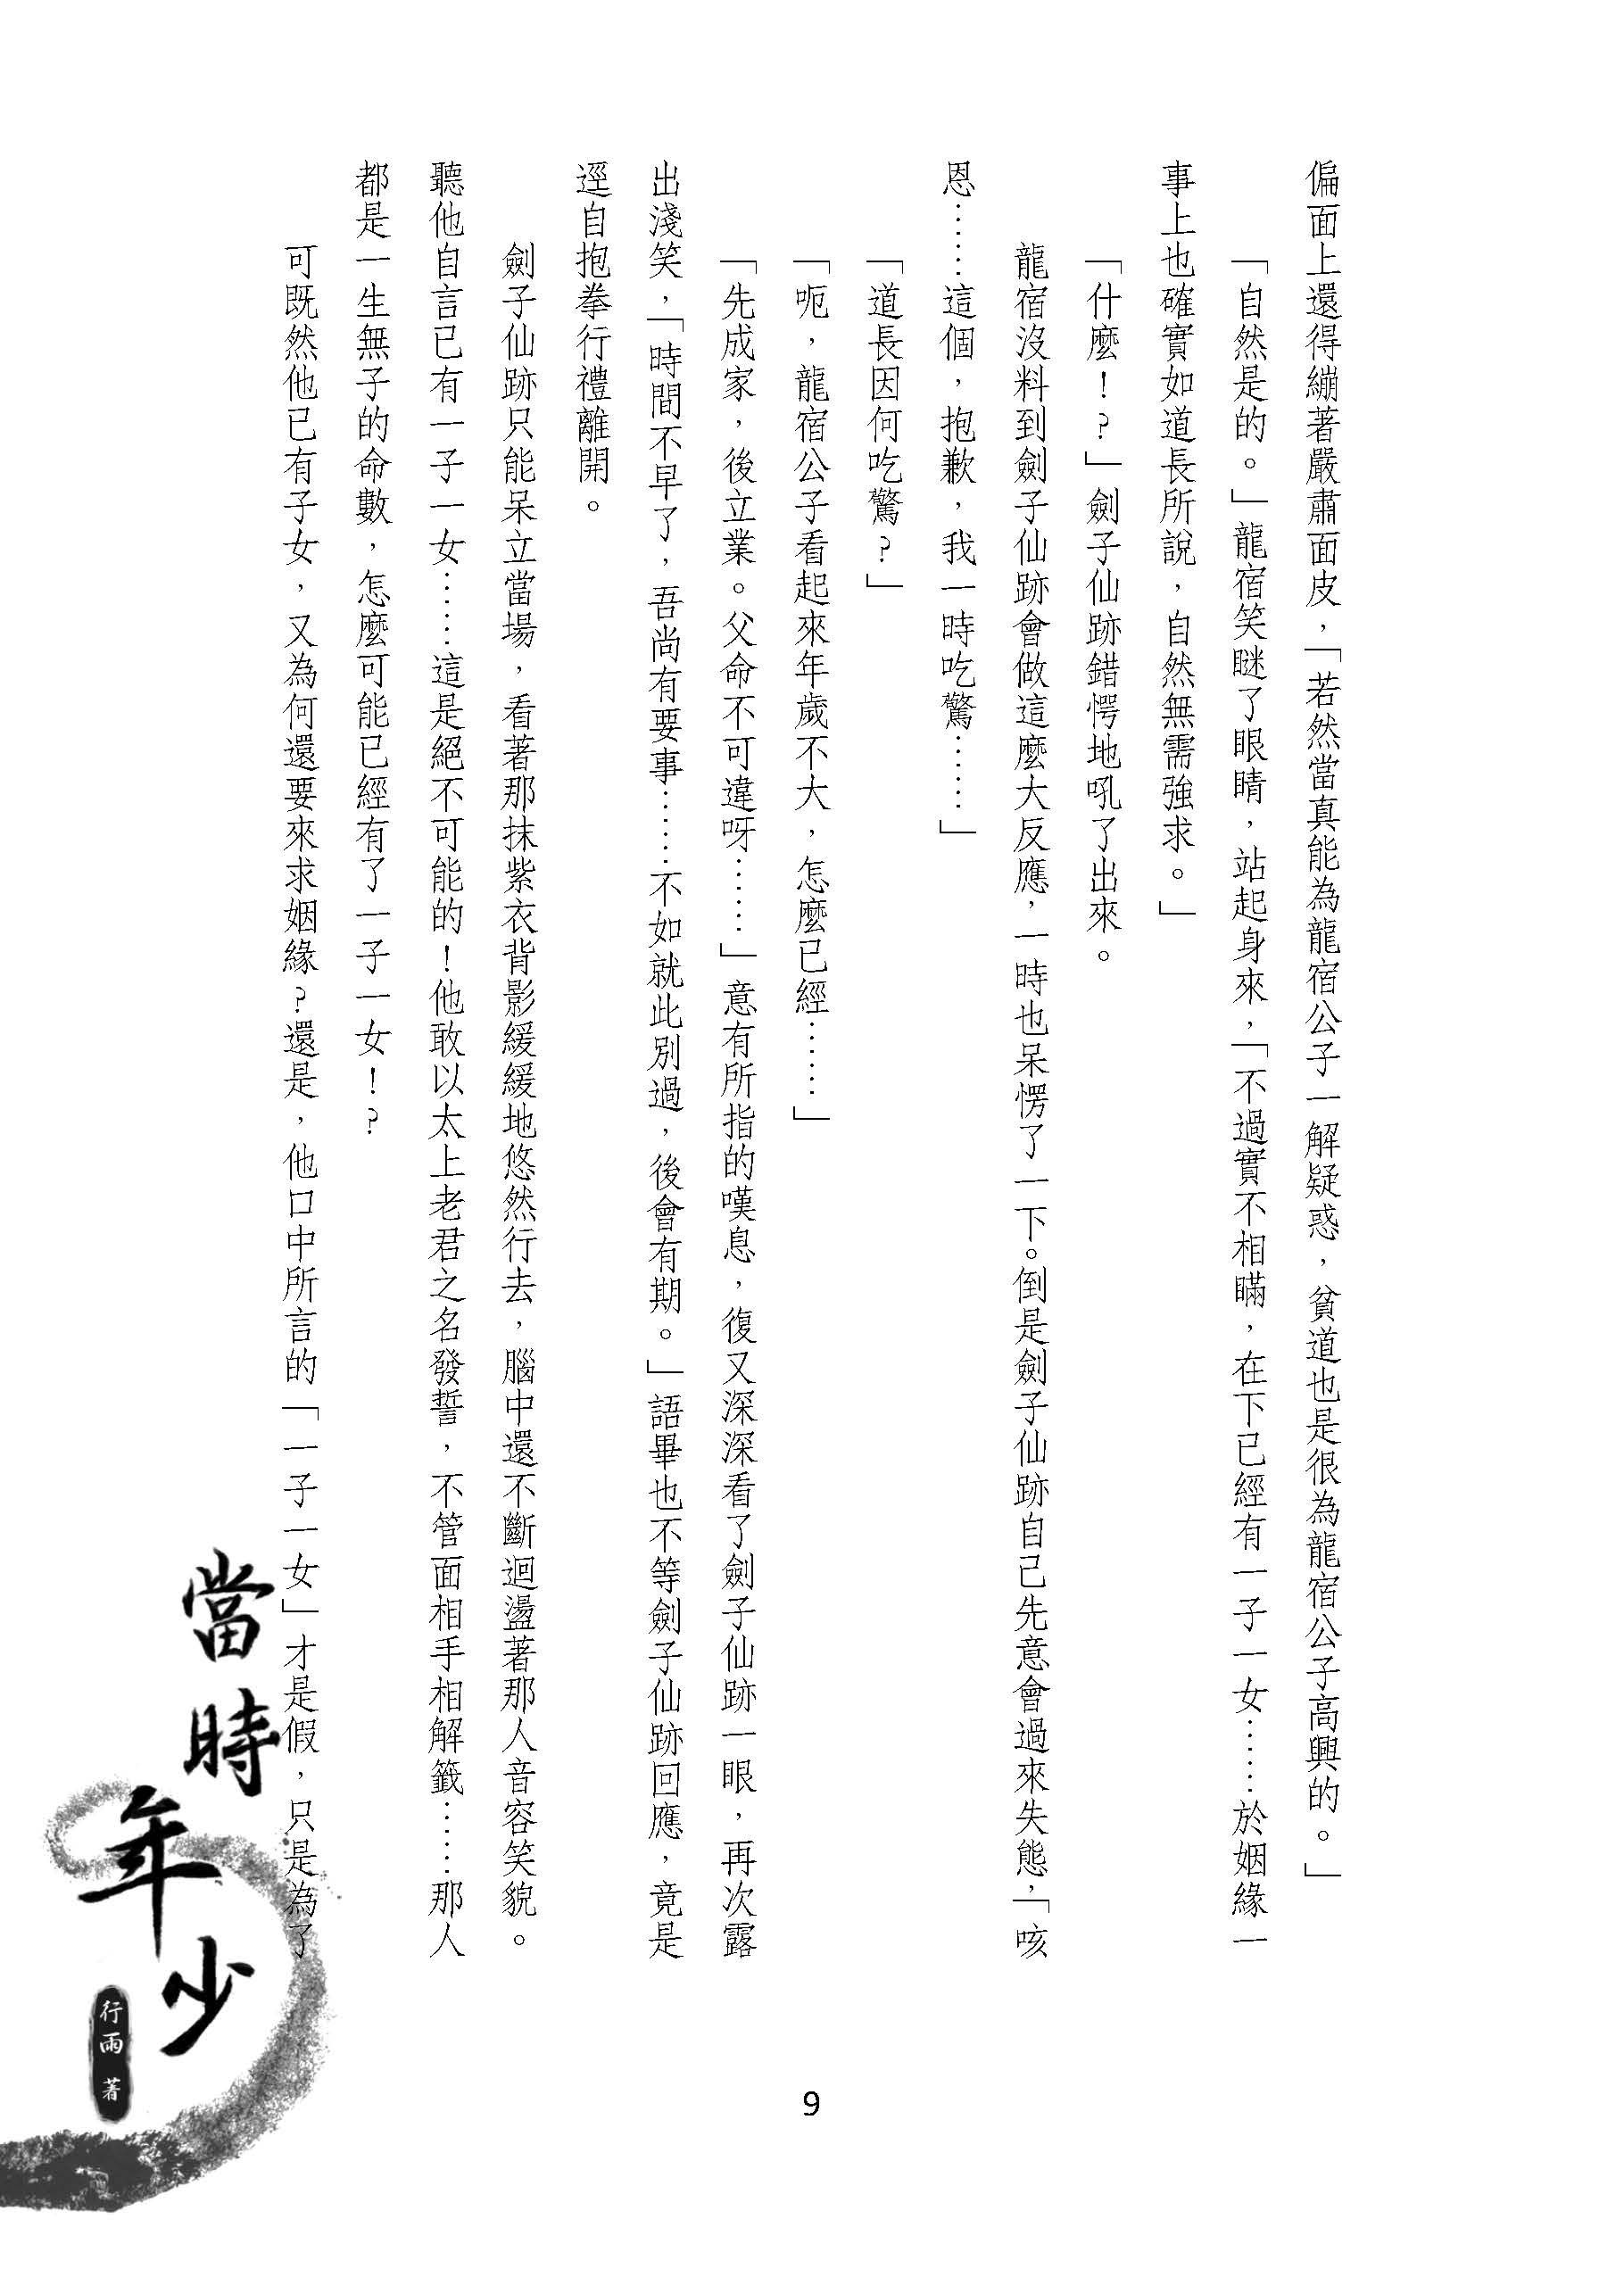 偏面上還得繃著嚴肅面皮，「若然當真能為龍宿公子一解疑惑，貧道也是很為龍宿公子高興的。」
「自然是的。」龍宿笑瞇了眼睛，站起身來，「不過實不相瞞，在下已經有一子一女……於姻緣一
事上也確實如道長所說，自然無需強求。」
「什麼！？」劍子仙跡錯愕地吼了出來。
龍宿沒料到劍子仙跡會做這麼大反應，一時也呆愣了一下。倒是劍子仙跡自己先意會過來失態，「咳
恩……這個，抱歉，我一時吃驚……」
「道長因何吃驚？」
「呃，龍宿公子看起來年歲不大，怎麼已經……」
「先成家，後立業。父命不可違呀……」意有所指的嘆息，復又深深看了劍子仙跡一眼，再次露
出淺笑，「時間不早了，吾尚有要事……不如就此別過，後會有期。」語畢也不等劍子仙跡回應，竟是
逕自抱拳行禮離開。
劍子仙跡只能呆立當場，看著那抹紫衣背影緩緩地悠然行去，腦中還不斷迴盪著那人音容笑貌。
聽他自言已有一子一女……這是絕不可能的！他敢以太上老君之名發誓，不管面相手相解籤……那人
都是一生無子的命數，怎麼可能已經有了一子一女！？
可既然他已有子女，又為何還要來求姻緣？還是，他口中所言的「一子一女」才是假，只是為了
當時
年少
行雨 著
9